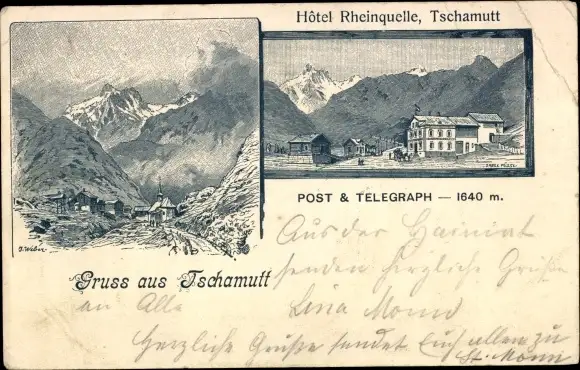 Hôtel Rheinquelle, Tschamutt
J. Weber
POST & TELEGRAPH — 1640 m.
Gruss aus Tschamutt
Aus der
senden herzliche Grüße
an Alle Lina
Herzliche Grüße sendet Euch allen zu